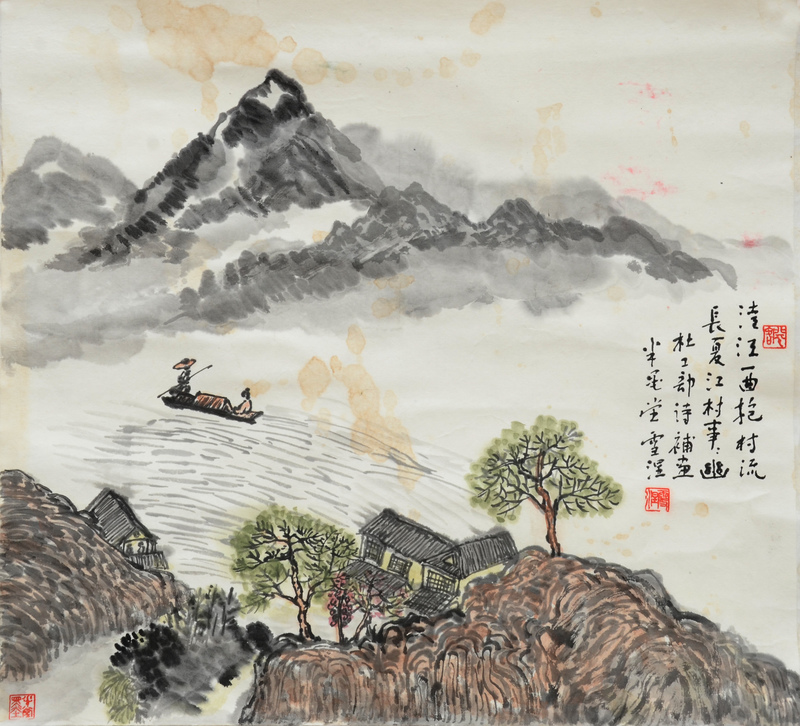 清江一曲抱村流
長夏江村事〻幽
杜工部詩補畫
半墨堂雪